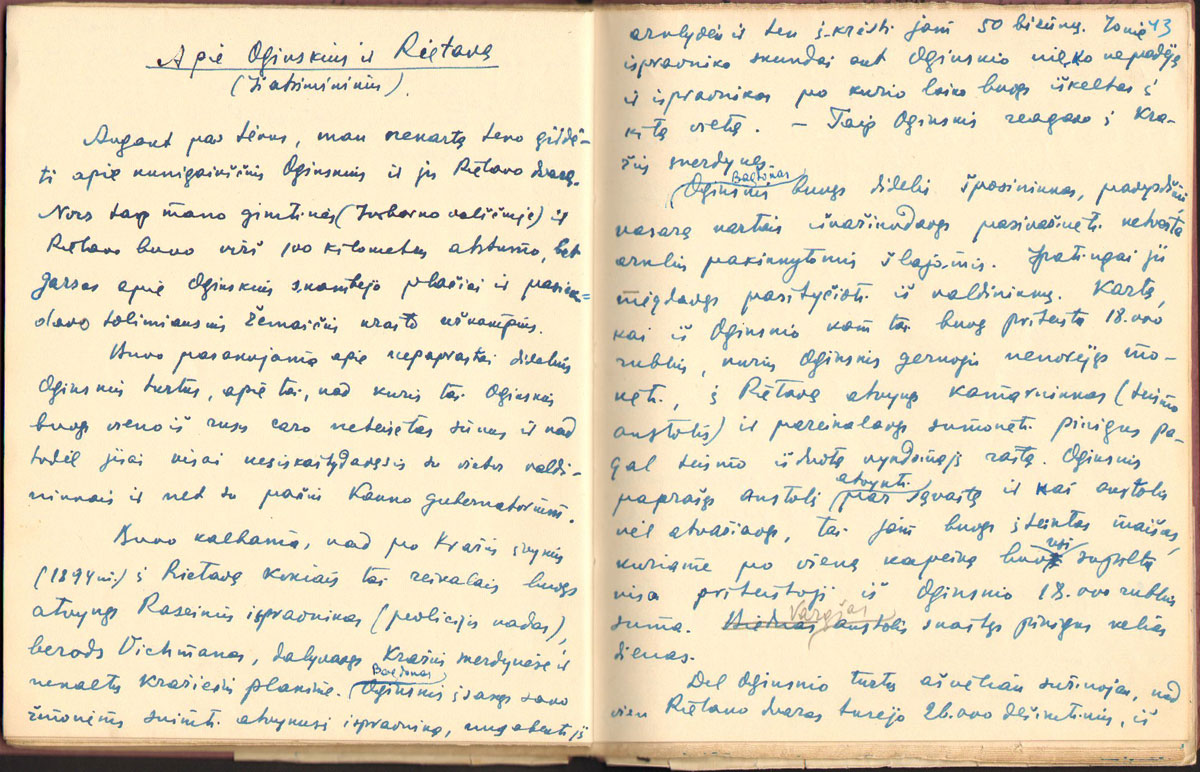 Apie Oginskius ir Rietavą
(Iš atsiminimų).
Augant pas tėvus, man nekartą teko girdė-
ti apie kunigaikščius Oginskius ir jų Rietavo dvarą.
Nors tarp mano gimtinės (Jurbarko valsčiuje) ir
Rietavo buvo virš 100 kilometrų atstumo, bet
garsas apie Oginskius skambėjo plačiai ir pasiek-
davo tolimiausius Žemaičių krašto užkampius.
Buvo pasakojama apie nepaprastai didelius
Oginskių turtus, apie tai, kad kuris tai Oginskis
buvęs vieno iš rusų caro neteisėtas sūnus ir kad
todėl jisai visai nesiskaitydavęs su vietos valdi-
ninkais ir net su pačiu Kauno gubernatorium.
Buvo kalbama, kad po Kražių įvykių
(1894 m.) į Rietavą kokiais tai reikalais buvęs
atvykęs Raseinių ispravnikas (policijos vadas),
berods Vichmanas, dalyvavęs Kražių skerdynėse ir
nekaltų kražiečių plakime. Bogdanas Oginskis įsakęs savo
žmonėms suimti atvykusį ispravniką, nugabenti jį
43
arklydėn ir ten įkrėsti jam 50 bizūnų. Tokie
ispravniko skundai ant Oginskio nieko nepadėję
ir ispravnikas po kurio laiko buvęs iškeltas į
kitą vietą. – Taip Oginskis reagavo į Kra-
žių skerdynes.
Bogdanas Oginskis buvęs didelis šposininkas,
vasarą kartais išvažiuodavęs pasivažinėti ketvertą
arklių pakinkytomis šlajomis. Ypatingai jis
mėgdavęs pasityčioti iš valdininkų. Kartą,
kai iš Oginskio kam tai buvę priteista 18.000
rublių, kurių Oginskis geruoju nenorėjęs mo-
kėti, į Rietavą atvykęs kamarninkas (teismo
anstolis) ir pareikalavęs sumokėti pinigus pa-
gal teismo išduotą vykdomąjį raštą. Oginskis
paprašęs anstolį atvykti par savaitę ir kai anstolis
vėl atvažiavęs, tai jam buvęs įteiktas maišas,
kuriame po vieną kapeiką buvusi supilta
visa priteistoji iš Oginskio 18.000 rublių
suma. Vargšas anstolis skaitęs pinigus kelias
dienas.
Dėl Oginskio turtų aš vėliau sužinojau, kad
vien Rietavo dvaras turėjo 26.000 dešimtinių, iš